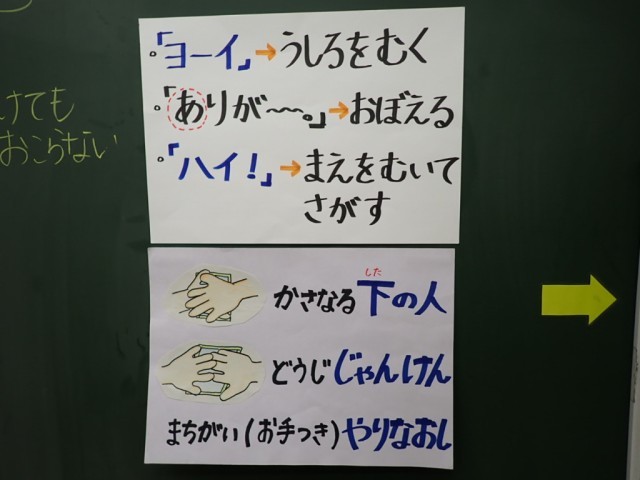 けても
おこらない
。「ヨーイ」→うしろをむく
。「ありが〜〜。」→おぼえる
。「ハイ！」→まえをむいて
さがす
かさなる下の人
した
どうじじゃんけん
まちがい(お手つき)やりなおし